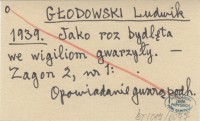 GŁODOWSKI Ludwik
1939. Jako roz bydlęta
we wigiliom gwarzyły. —
Zagon 2, nr 1:
Opowiadanie gwarą podh.